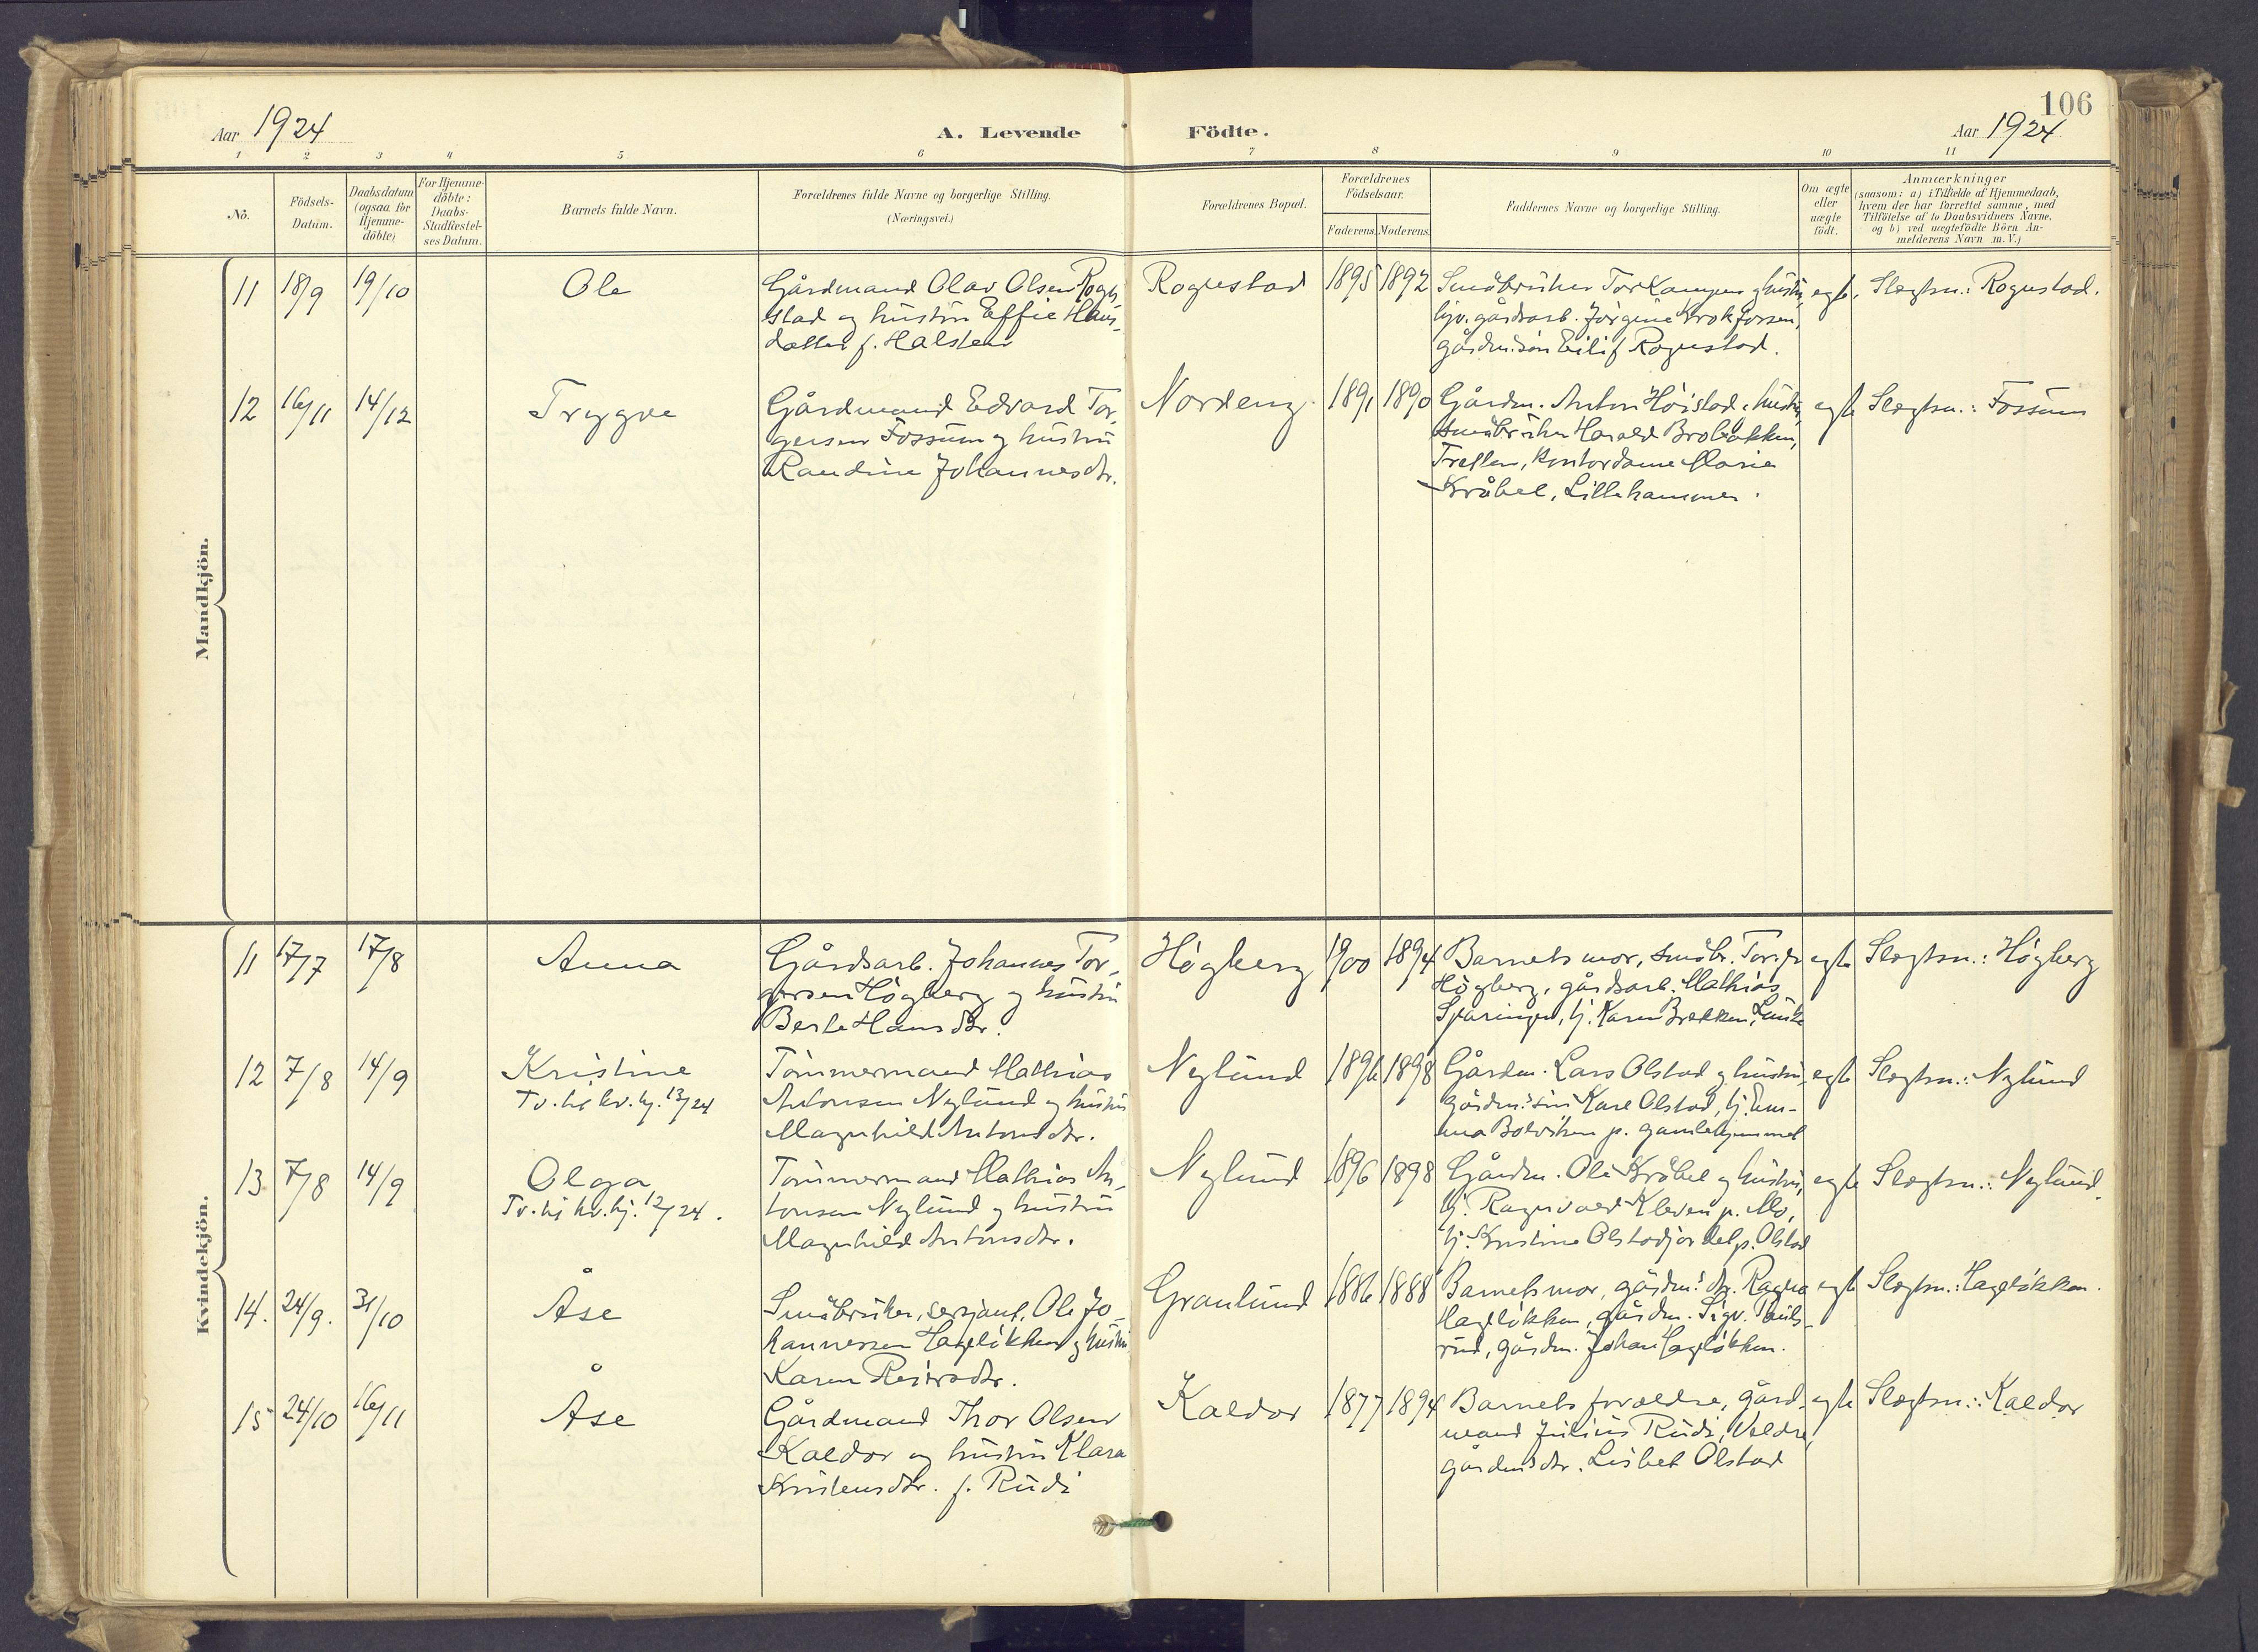 106
Aar 1924
A. Levende Födte.
Aar 1924
1 2 3 4 5 6 7 8 9 10 11
No.
Födsels-
Datum.
Daabsdatum
(ogsaa for
Hjemme-
döbte)
For Hjemme-
döbte:
Daabs-
Stadfæstel-
ses Datum.
Barnets fulde Navn.
Forældrenes fulde Navne og borgerlige Stilling.
(Næringsvei.)
Forældrenes Bopæl.
Forældrenes
Födselsaar.
Faderens. Moderens.
Faddernes Navne og borgerlige Stilling.
Om ægte
eller
uægte
födt.
Anmærkninger
(saasom: a) i Tilfælde af Hjemmedaab,
hvem der har forrettet samme, med
Tilföielse af to Daabsvidners Navne.
og b) ved uægtefödte Börn An-
melderens Navn m. V.)
Mandkjön.
11 18/9 19/10
Ole
Gårdmand Olav Olsen Rogn-
stad og hustru Effie Hans-
datter f. Halsten
Rognstad
1895 1892
Småbruker Tor Kampen og hustru,
gårdsarb. Jörgine Krokfossen,
gårdm.sön Eilif Rognstad.
egte.
Slegtsn.: Rognstad.
12 16/11 14/12
Trygve
Gårdmand Edvard Tor-
gersen Fossum og hustru
Randine Johannesdtr.
Nordeng.
1891 1890
Gårdm. Anton Höistad, hustru,
småbruker Harald Brobakken,
Tretten, kontordame Marie
Kråbel, Lillehammer.
egte
Slegtsn.: Fossum
Kvindekjön.
11 17/7 17/8
Anna
Gårdsarb. Johannes Tor-
gersen Högberg og hustru
Berte Hansdtr.
Högberg
1900 1894
Barnets mor, småbr. Torger
Högberg, gårdsarb. Mathias
tj. Karen Brekken,
egte
Slegtsn.: Högberg
12 7/8 14/9
Kristine
Tv. kv. kj. 13/24
Tömmermand Mathias
Antonsen Nylund og hustru
Magnhild Antonsdtr.
Nylund
1896 1898
Gårdm. Lars Olstad og hustru,
gårdm.s sön Karl Olstad, tj. Em-
ma Bolviken p. gamlehjemmet
egte
Slegtsn.: Nylund
13 7/8 14/9
Olga
Tv. kv. kj. 12/24.
Tömmermand Mathias An-
tonsen Nylund og hustru
Magnhild Antonsdtr.
Nylund
1896 1898
Gårdm. Ole Kråbel og hustru,
tj. Ragnvald Kleven p. Mo,
tj. Kristine Olstadjordet p. Olstad
egte
Slegtsn.: Nylund.
14. 24/9. 31/10
Åse
Småbruker, serjant, Ole Jo-
hannessen Haglökken og hustru
Karen Reiersdtr.
Granlund
1886 1888
Barnets mor, gårdm.s dtr. Ragna
Haglökken, gårdm. Sigv. Pauls-
rud, gårdm. Johan Haglökken.
egte
Slegtsn.: Haglökken.
15 24/10 16/11
Åse
Gårdmand Thor Olsen
Kaldor og hustru Klara
Kristensdtr. f. Rudi
Kaldor
1877 1894
Barnets forældre, gård-
mand Julius Rudi, Veldre,
gårdm.s dtr. Lisbet Olstad
egte
Slegtsn.: Kaldor